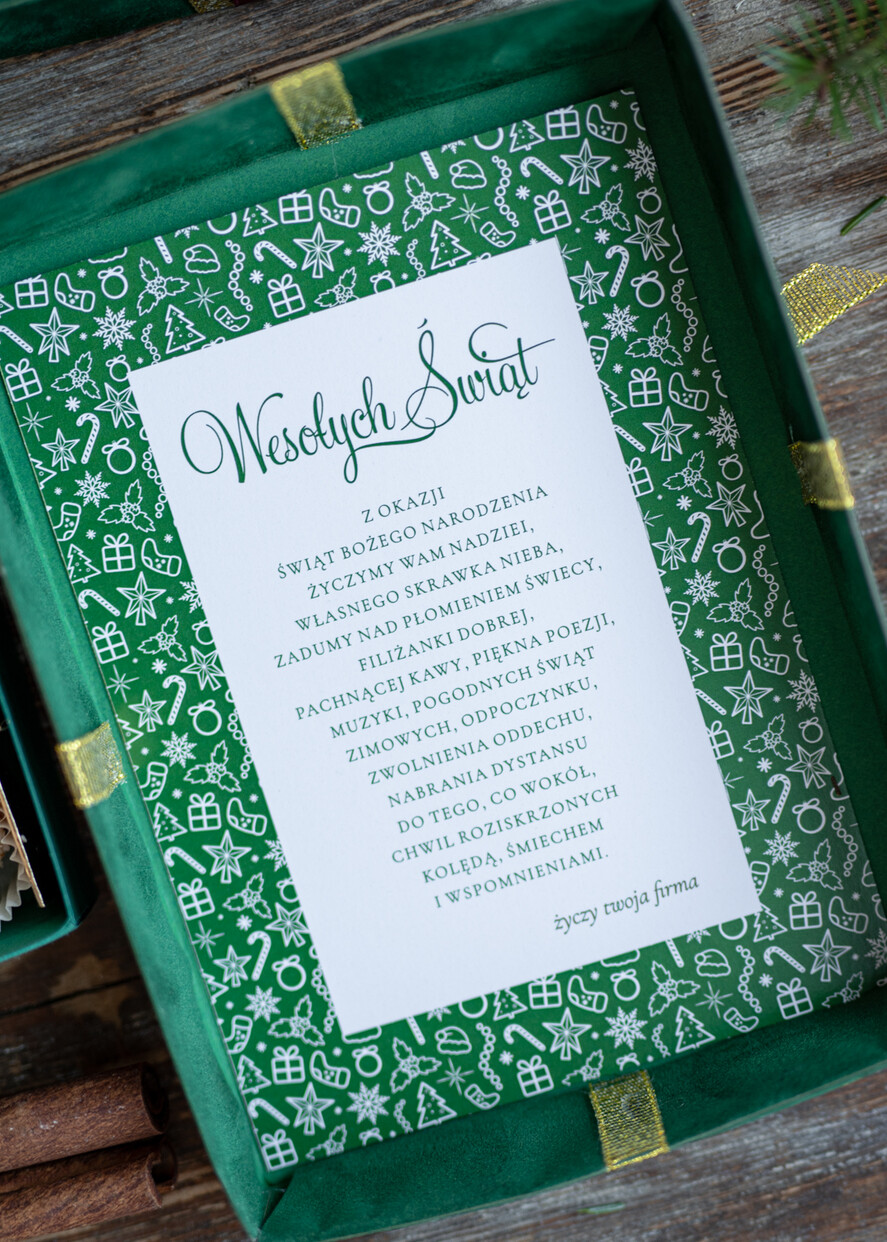 Wesołych Świąt
Z OKAZJI
ŚWIĄT BOŻEGO NARODZENIA
ŻYCZYMY WAM NADZIEI,
WŁASNEGO SKRAWKA NIEBA,
ZADUMY NAD PŁOMIENIEM ŚWIECY,
FILIŻANKI DOBREJ,
PACHNĄCEJ KAWY, PIĘKNA POEZJI,
MUZYKI, POGODNYCH ŚWIĄT
ZIMOWYCH, ODPOCZYNKU,
ZWOLNIENIA ODDECHU,
NABRANIA DYSTANSU
DO TEGO, CO WOKÓŁ,
CHWIL ROZISKRZONYCH
KOLĘDĄ, ŚMIECHEM
I WSPOMNIENIAMI.
życzy twoja firma